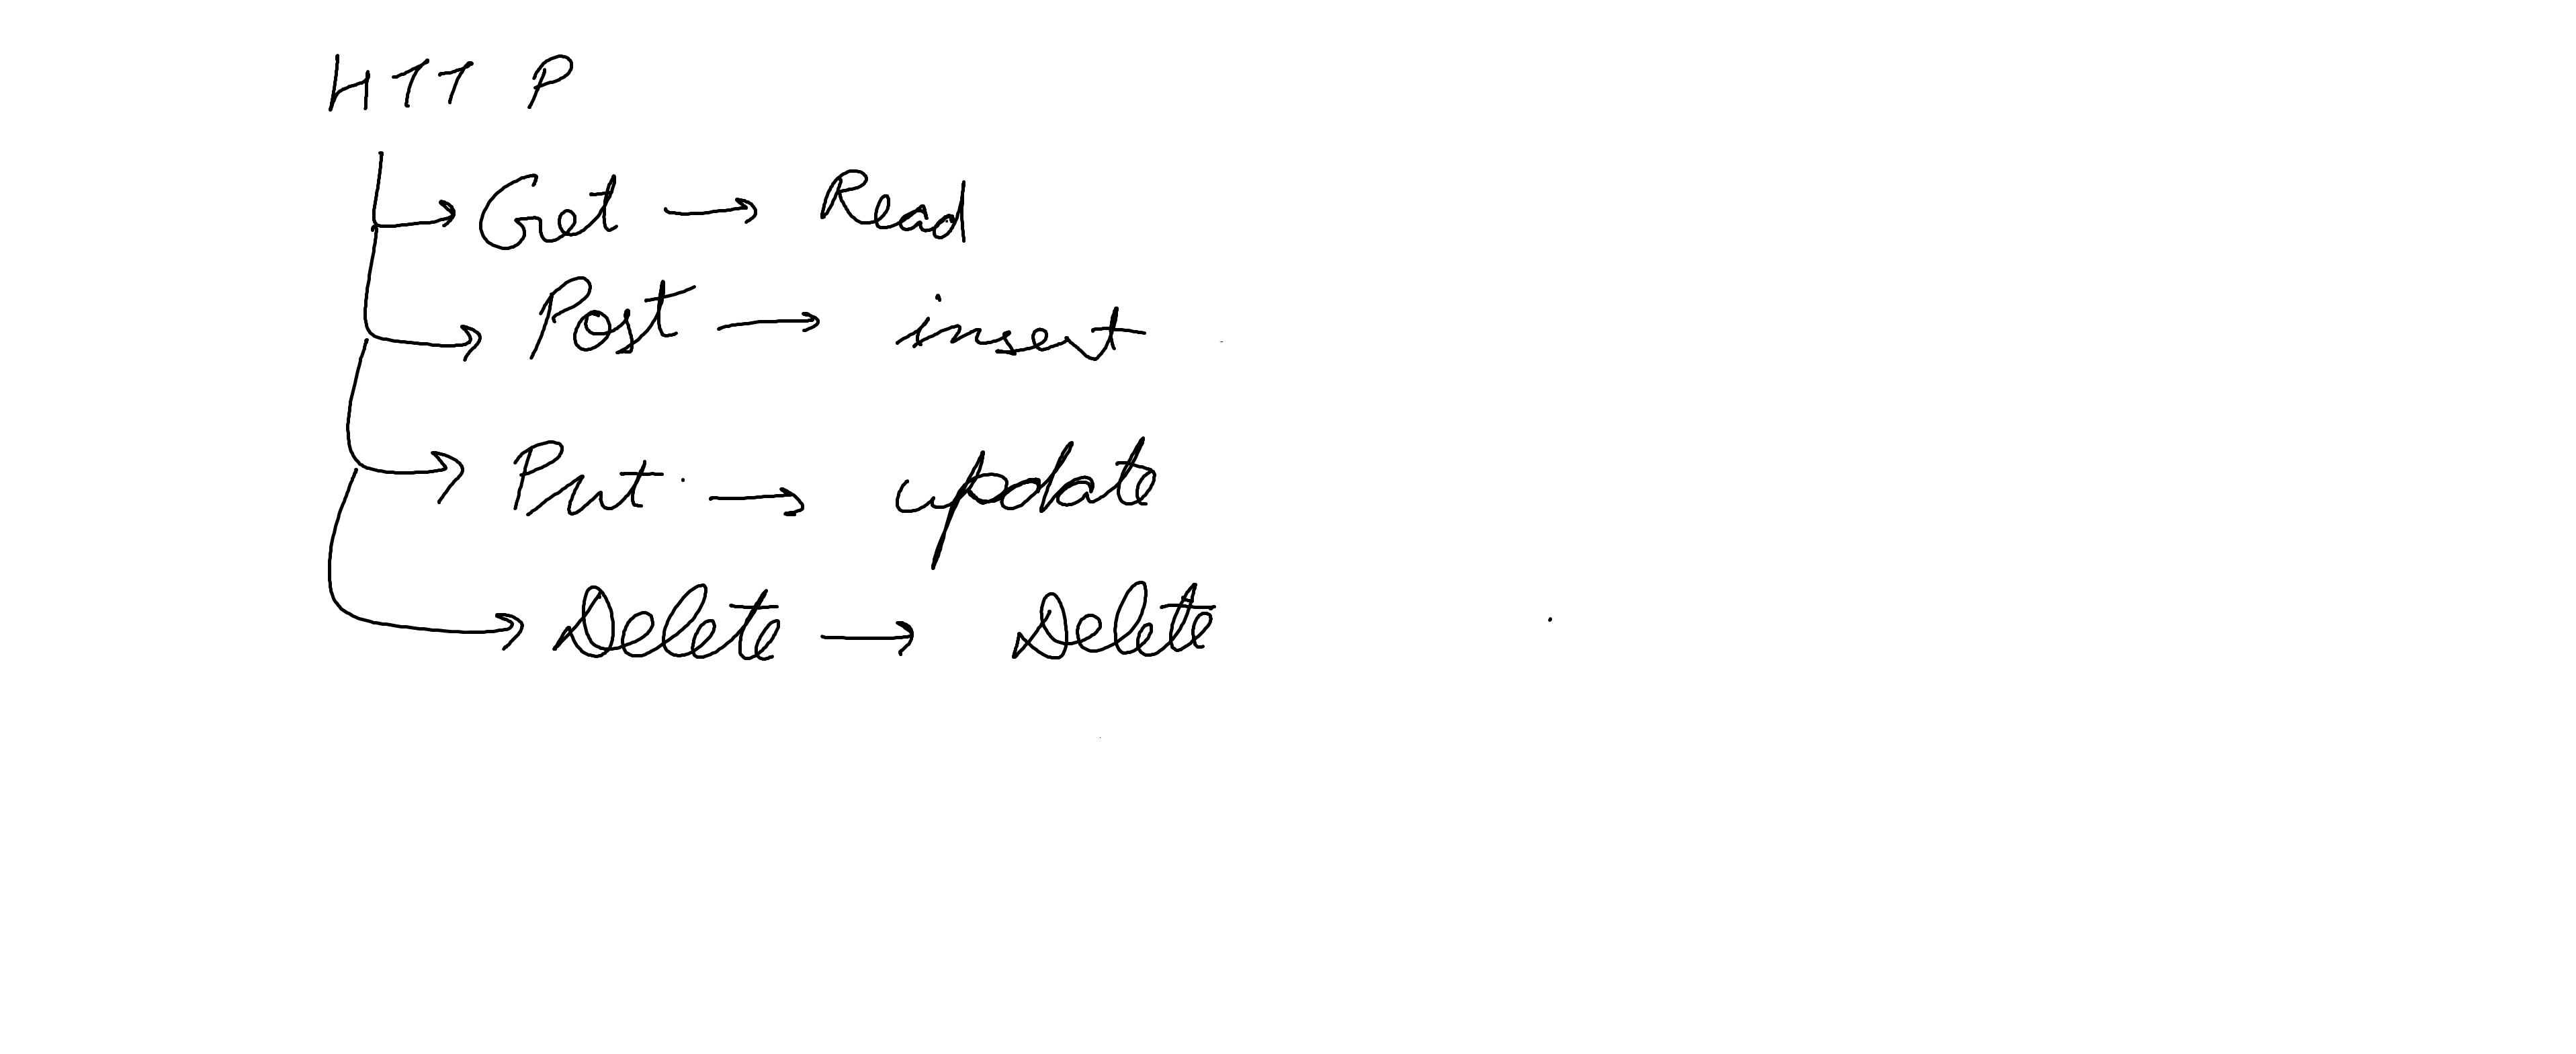 HTTP
Get → Read
Post → insert
Put → update
Delete → Delete